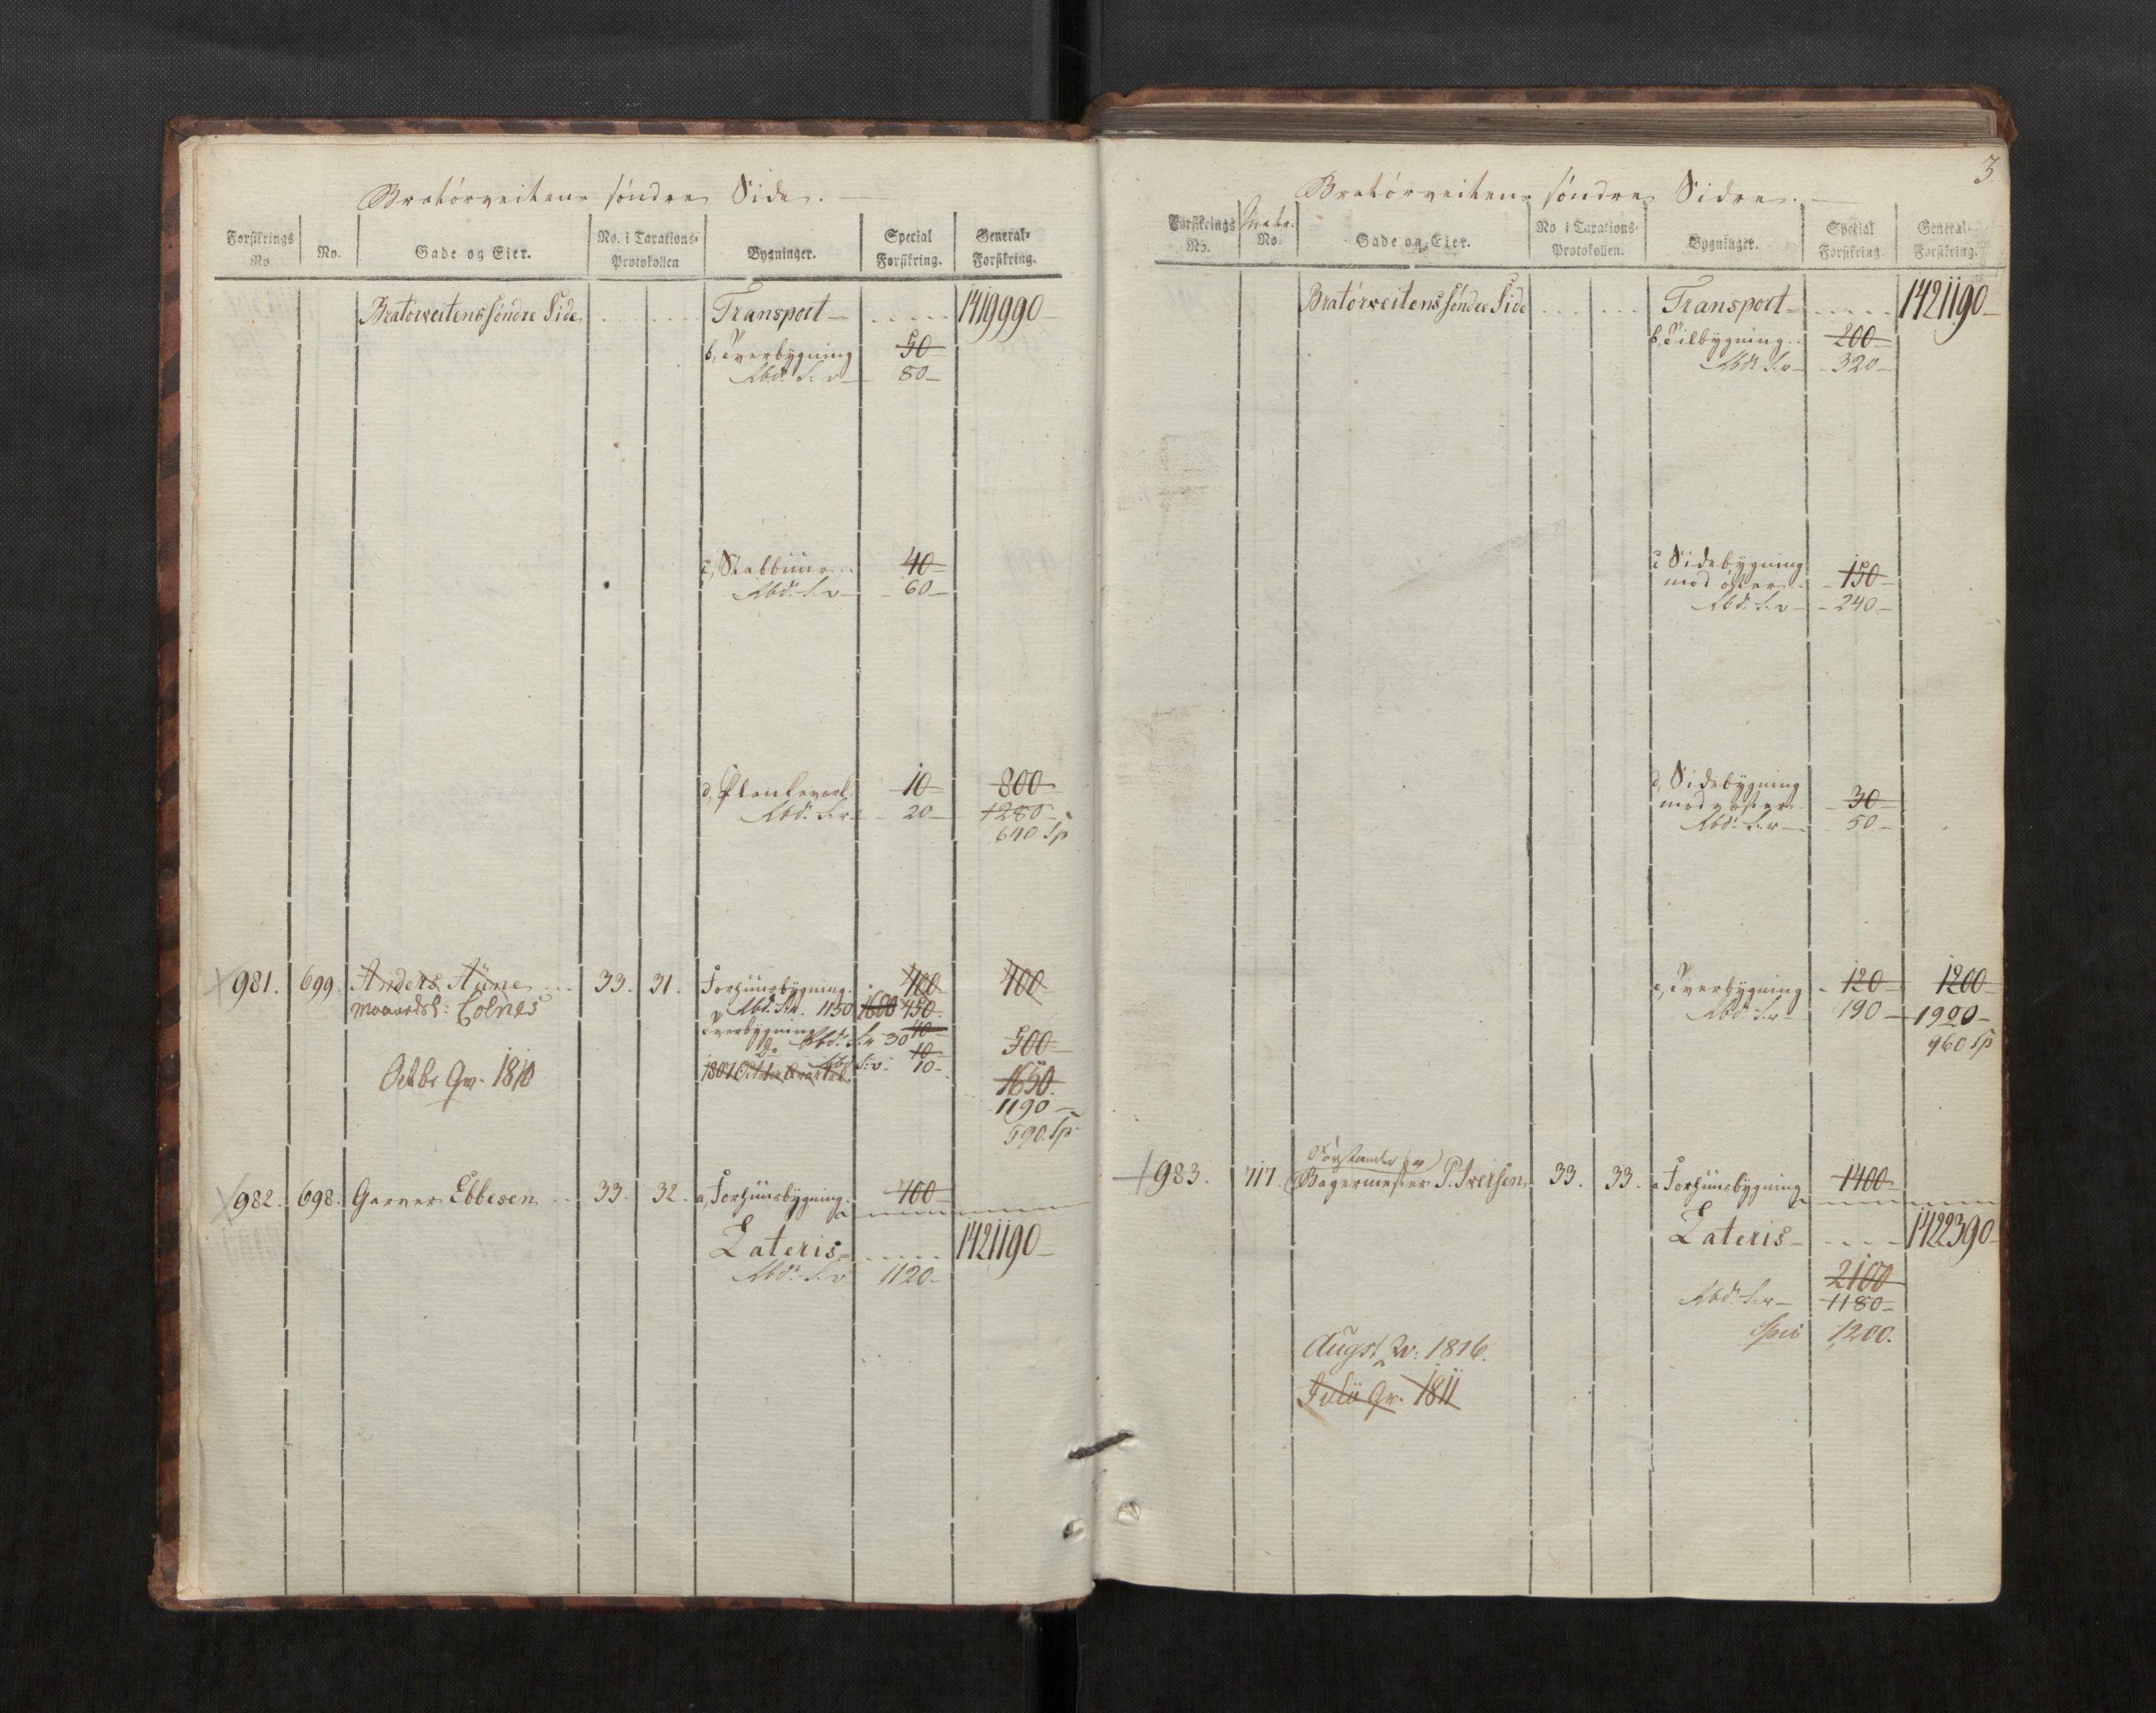 Bratørveitens søndre Side.
Forsikrings No. No. Gade og Eier. No. i Taxations-Protokollen Bygninger. Special Forsikring. General-Forsikring.
Bratørveitens søndre Side Transport 1419990
b, Tverbygning 50
80
c, Stabbuur 40
60
d, 10 800
20 1280
640 Sp
981. 699. Anders Aune 33. 31. Forhuusbygning 400 400
1150 1600 450
Tverbygning 10
30 10 500
1807 10
Octbr Qv. 1810
1650
1190
590 Sp
982. 698. Garver Ebbesen 33. 32. a, Forhuusbygning. 700
Lateris 1421190
1120
3
Bratørveitens søndre Sidre.
Forsikrings No. Matr. No. Gade og Eier. No i Taxations-Protokollen. Bygninger. Special Forsikring General-Forsikring.
Bratørveitens søndre Side Transport 1421190
b, Tilbygning 200
320
c Sidebygning
mod øster 150
240
d, Sidebygning
mod vester 30
50
e, Tverbygning 120 1200
190 1900
960 Sp
Forstander
983. 717. Bagermester P. Iversen 33. 33. a Forhuusbygning 1400
Lateris 1422390
2100
1180
Spec 1200.
Augst Qv: 1816.
Julii Qv. 1811